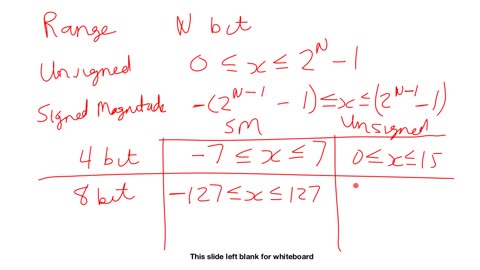 Range N bit
Unsigned 0 ≤ x ≤ 2^N - 1
Signed Magnitude -(2^{N-1} - 1) ≤ x ≤ (2^{N-1} - 1)
SM Unsigned
4 bit -7 ≤ x ≤ 7 0 ≤ x ≤ 15
8 bit -127 ≤ x ≤ 127
This slide left blank for whiteboard